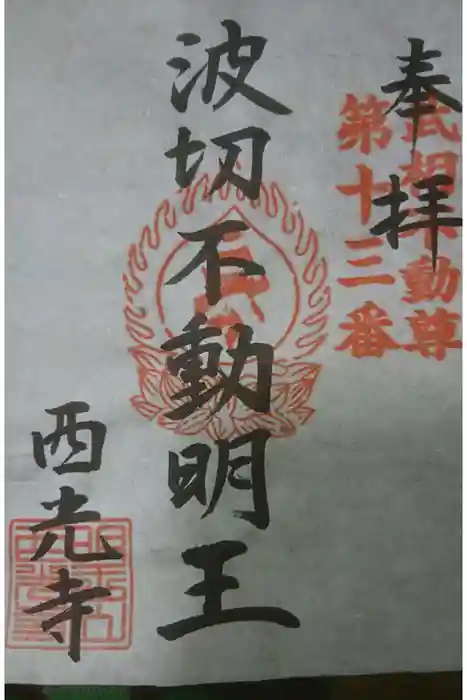 奉拝
武相不動尊
第十三番
波切不動明王
西光寺